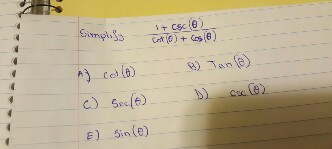 Simplify 1 + csc(θ) / cot(θ) + cos(θ)
A) cot(θ) B) Tan(θ)
C) Sec(θ) D) csc(θ)
E) Sin(θ)